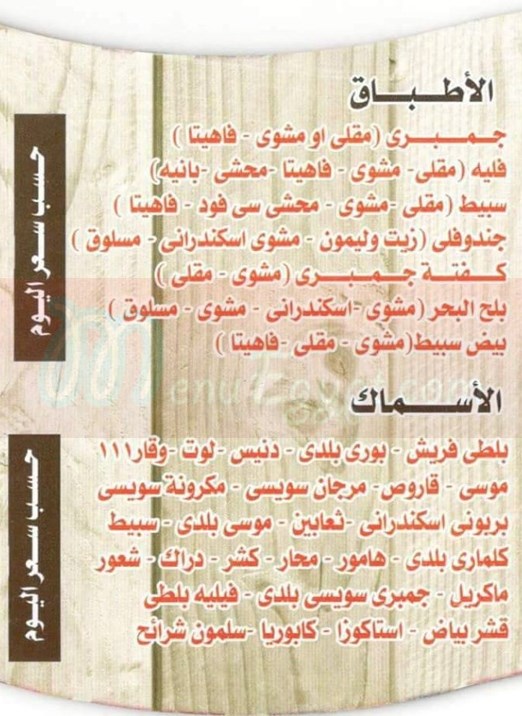 الأطباق
جمبرى (مقلى او مشوى - فاهيتا )
فليه (مقلى- مشوى - فاهيتا -محشى -بانيه)
سبيط (مقلى -مشوى - محشى سى فود - فاهيتا )
جندوفلى (زيت وليمون - مشوى اسكندرانى - مسلوق )
كفتة جمبرى (مشوى - مقلى )
بلح البحر (مشوى -اسكندرانى - مشوى - مسلوق )
بيض سبيط(مشوى - مقلى -فاهيتا )
حسب سعر اليوم
الأسماك
بلطى فريش - بورى بلدى - دنيس -لوت -وقار١١١
موسى - قاروص- مرجان سويسى - مكرونة سويسى
بربونى اسكندرانى -ثعابين - موسى بلدى - سبيط
كلمارى بلدى - هامور - محار - كشر - دراك - شعور
ماكريل - جمبرى سويسى بلدى - فيليه بلطى
قشر بياض - استاكوزا - كابوريا -سلمون شرائح
حسب سعر اليوم
MenuEgypt.com